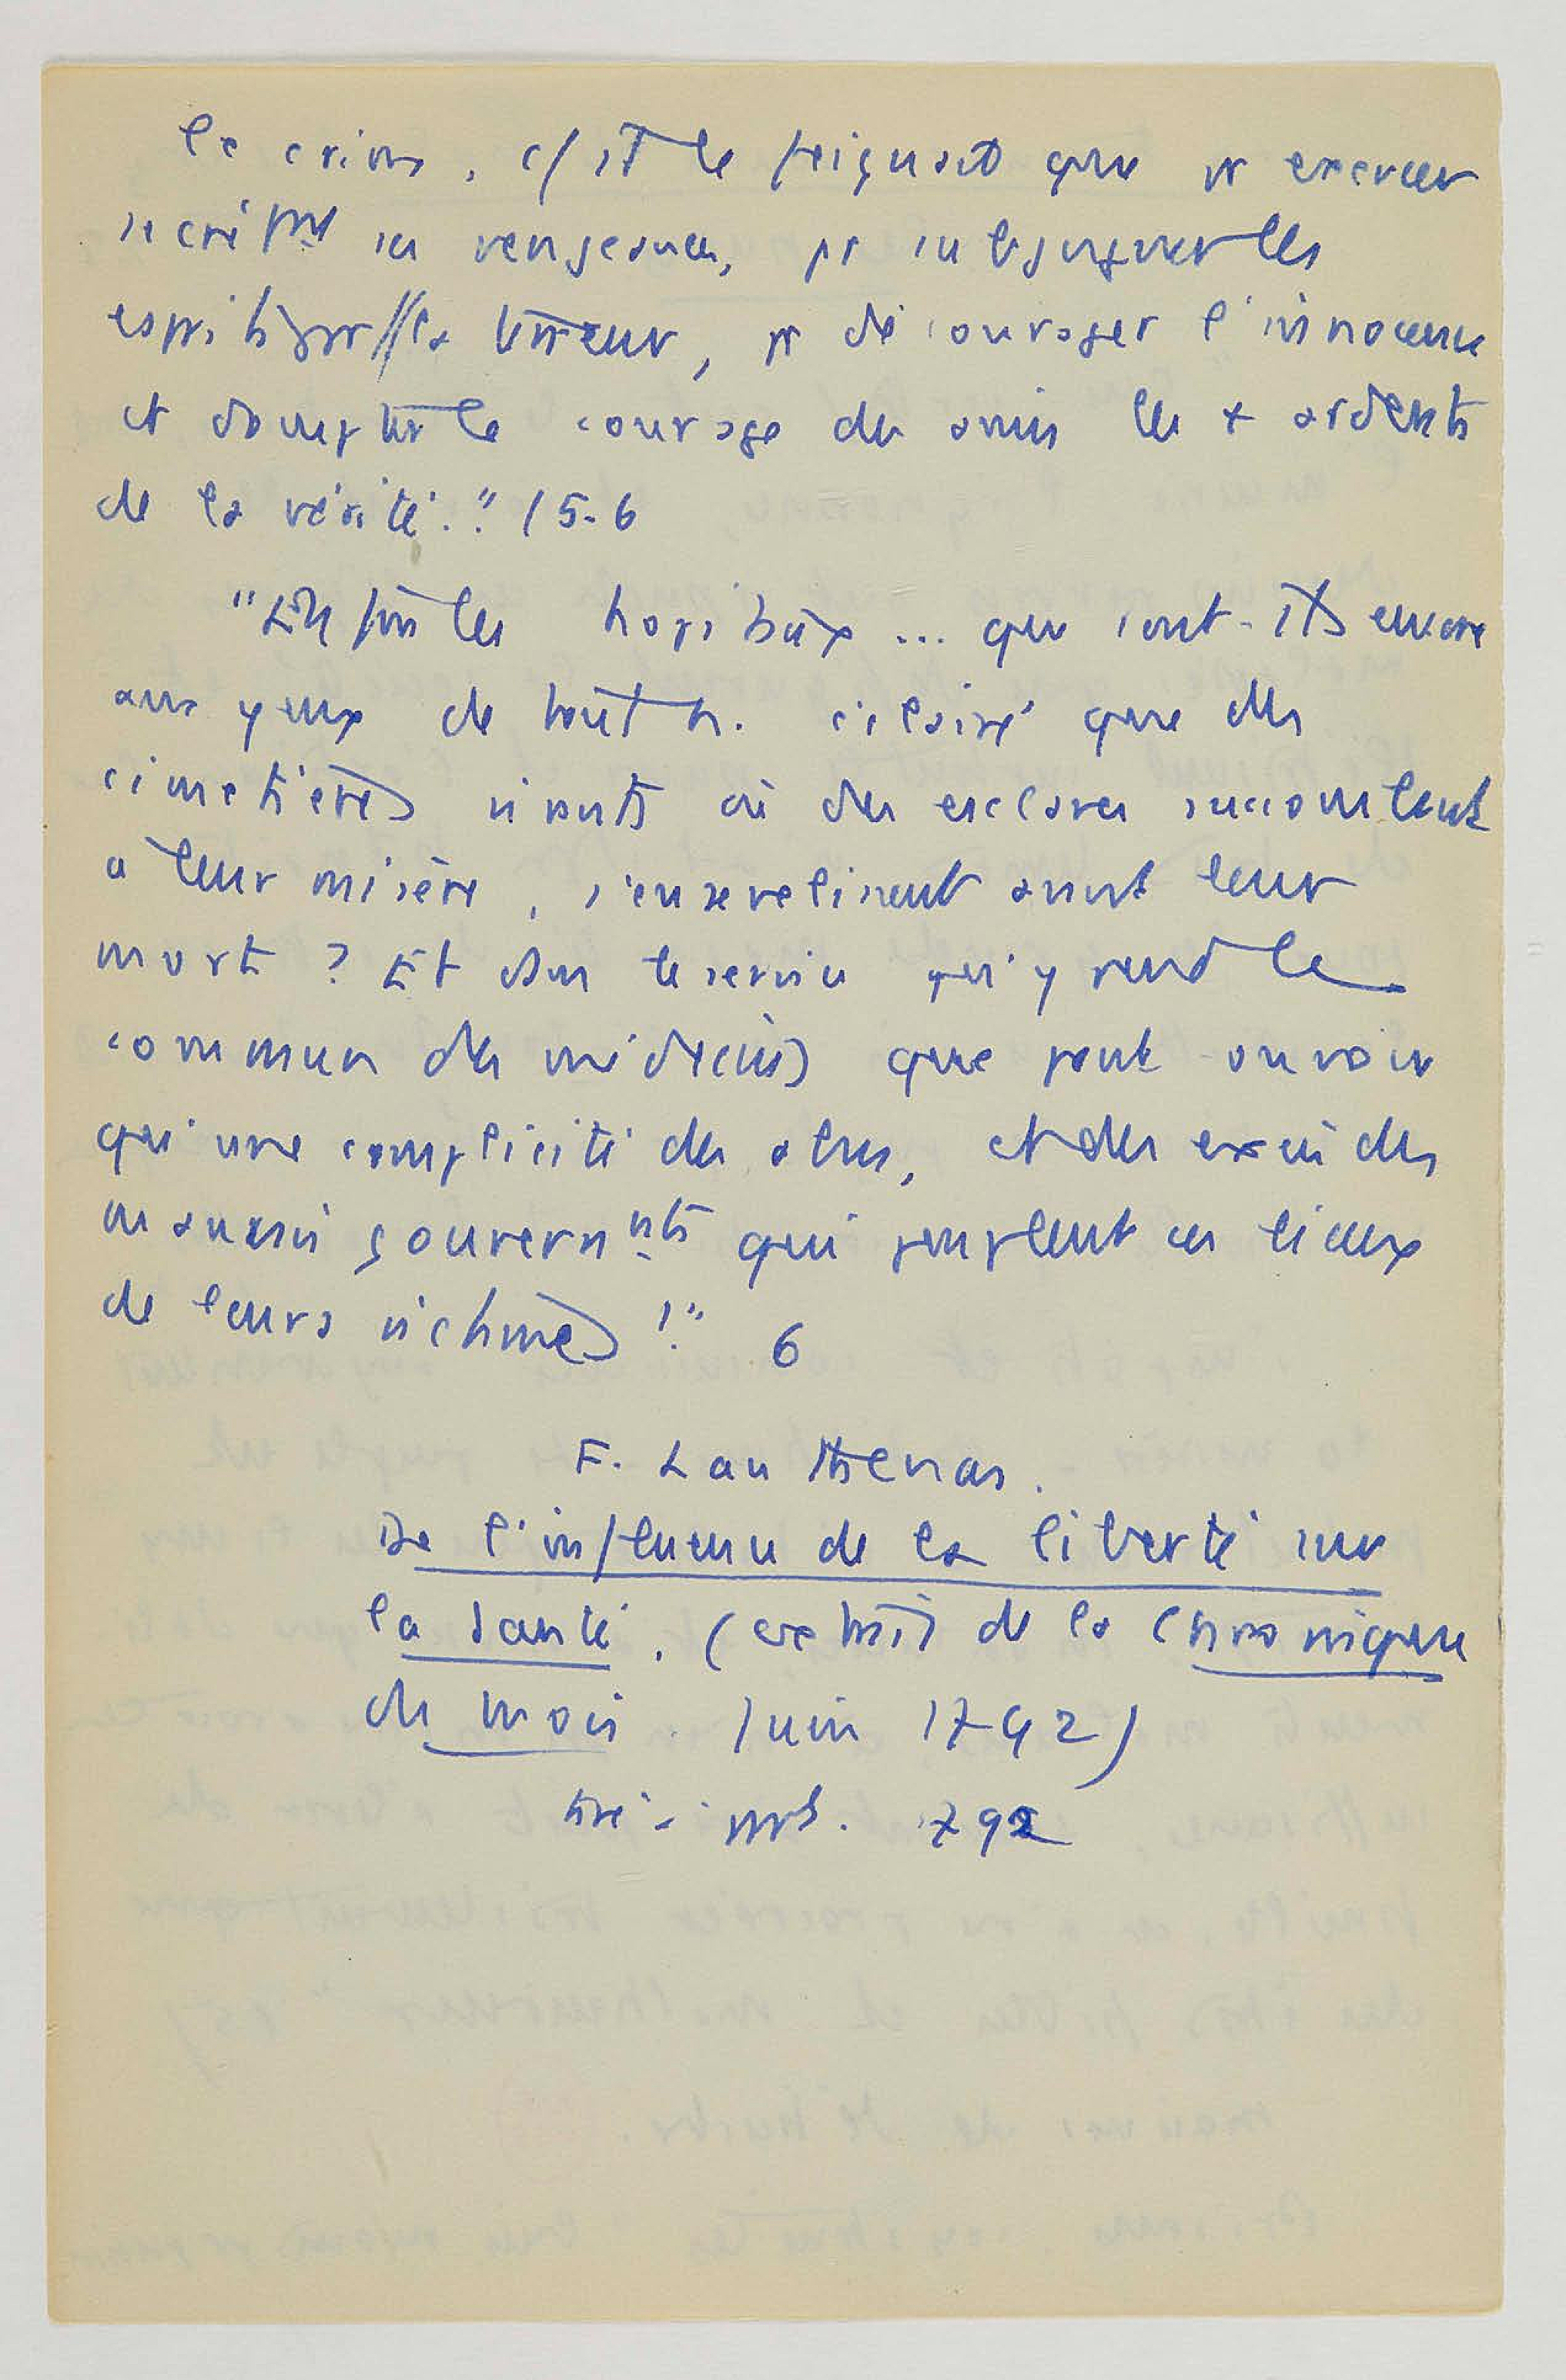 le crime, c/ et le poignard que pr exercer
secrètmt ses vengeances, pr subjuguer les
esprits par la terreur, pr décourager l'innocence
et dompter le courage des amis les + ardents
de la vérité." 15-6
"Enfin les hopitaux ... que sont-ils encore
aux yeux de tout h. éclairé que des
cimetières vivants où des esclaves succombent
à leur misère, s'ensevelissent avant leur
mort ? Et dans le service qu'y rend le
commun des médecins que peut on voir
qu'une complicité des abus, et des excès des
mauvais gouvernnts qui peuplent ces lieux
de leurs victimes !" 6
F. Lanthenas.
De l'influence de la liberté sur
la santé. (extrait de la Chronique
du mois. Juin 1792)
792